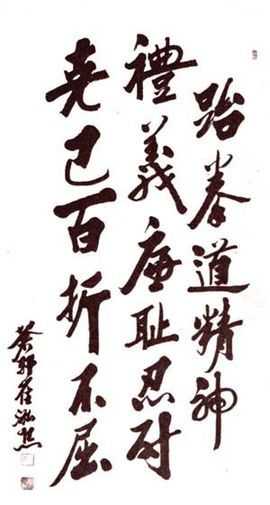 跆拳道精神
禮義廉耻忍耐
克己百折不屈
癸卯崔泓熙